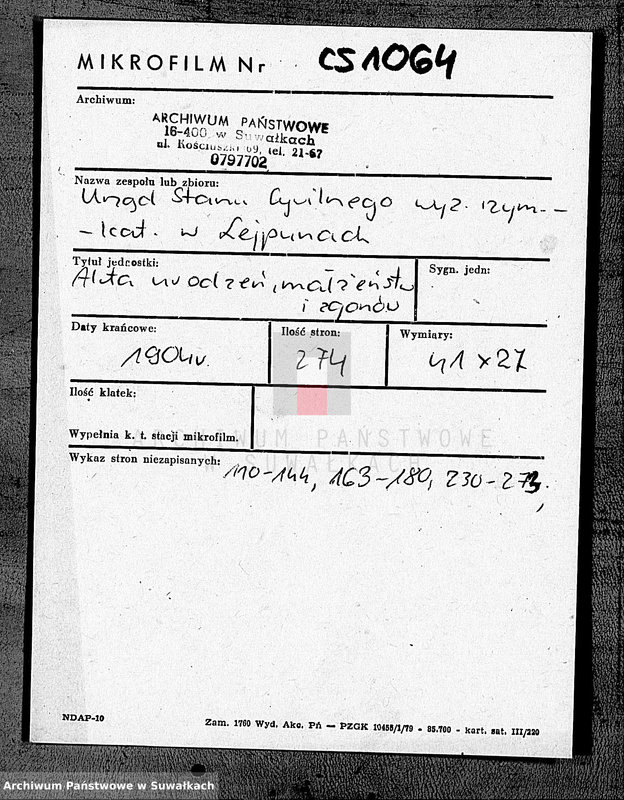 MIKROFILM Nr CS1064
Archiwum:
ARCHIWUM PAŃSTWOWE
16-400 w Suwałkach
ul. Kościuszki 69, tel. 21-67
0797702
Nazwa zespołu lub zbioru:
Urząd Stanu Cywilnego wyz. rzym.-
-kat. w Lejpunach
Tytuł jednostki:
Akta urodzeń, małżeństw
i zgonów
Sygn. jedn:
Daty krańcowe:
1904r.
Ilość stron:
274
Wymiary:
41 x 27
Ilość klatek:
Wypełnia k. t. stacji mikrofilm.
ARCHIWUM PAŃSTWOWE
SUWAŁKACH
Wykaz stron niezapisanych:
110-144, 163-180, 230-273.
NDAP-10
Zam. 1760 Wyd. Akc. Pń — PZGK 10455/1/79 - 85.700 - kart. sat. III/220
Archiwum Państwowe w Suwałkach